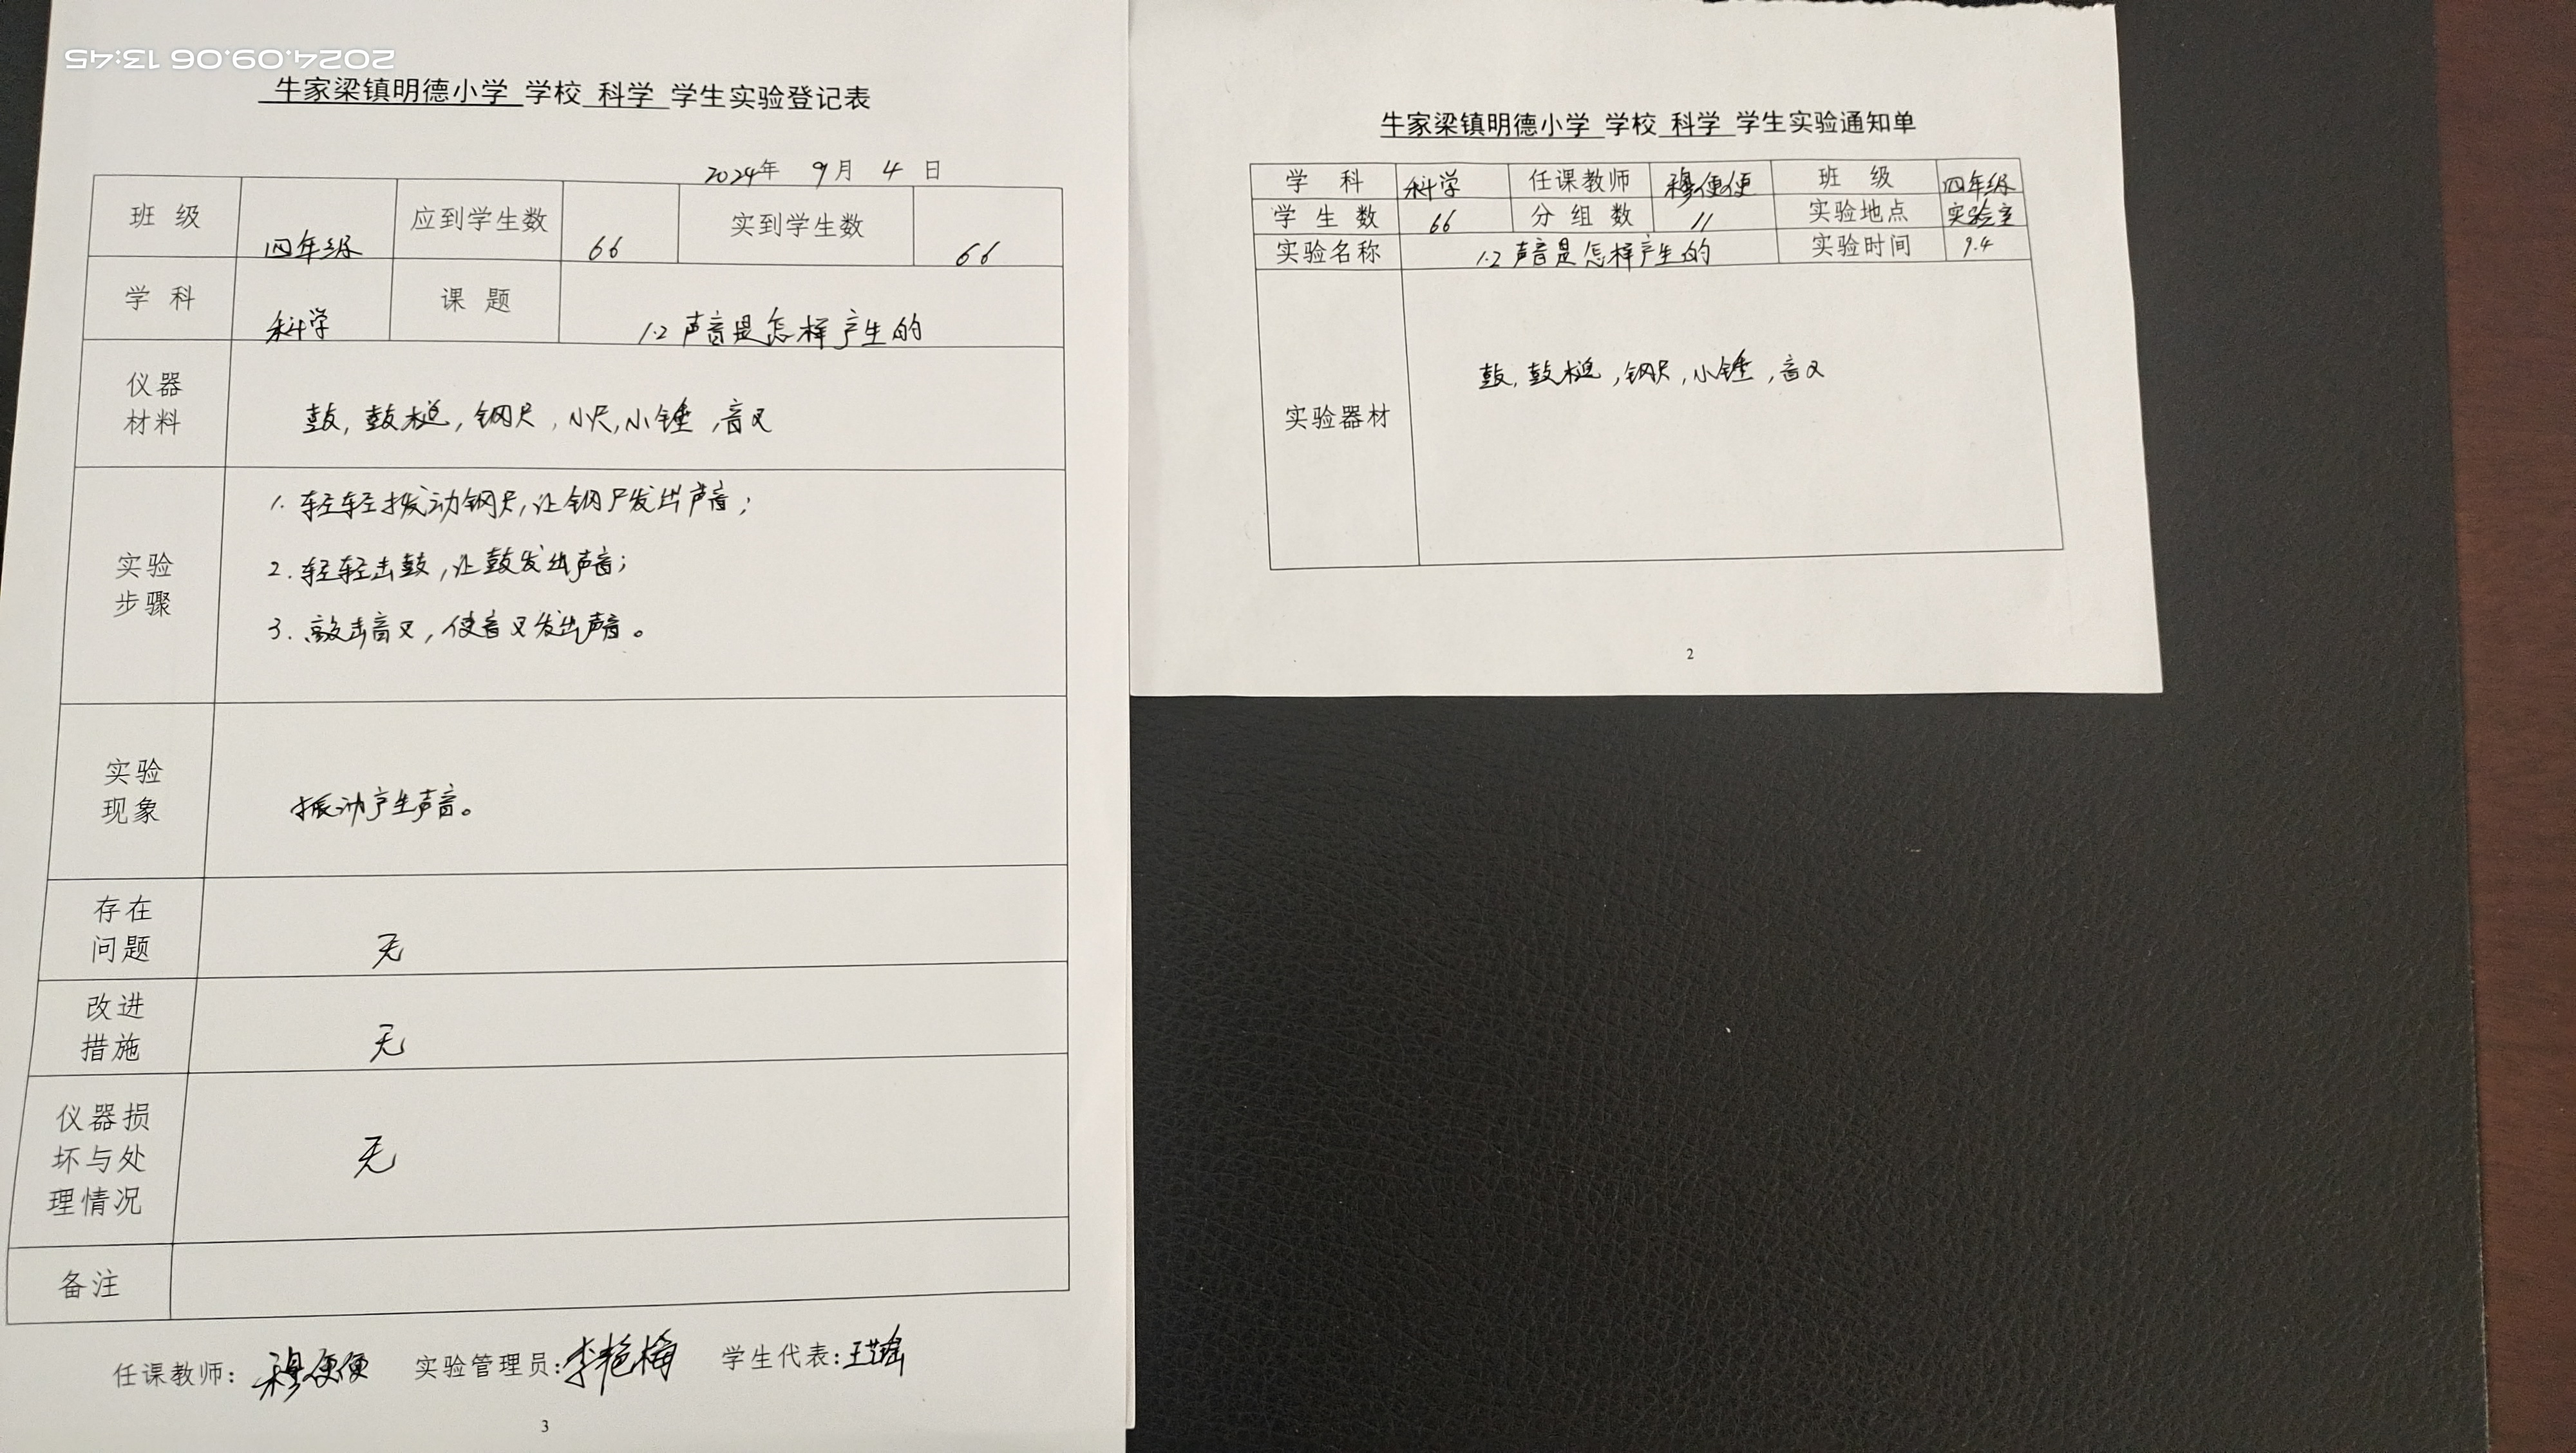 2024.09.06 13:45
牛家梁镇明德小学 学校 科学 学生实验登记表
2024年 9月 4 日
班级 四年级 应到学生数 66 实到学生数 66
学科 科学 课题 1.2 声音是怎样产生的
仪器材料 鼓,鼓槌,钢尺,小尺,小锤,音叉
实验步骤
1. 轻轻拨动钢尺,让钢尺发出声音;
2. 轻轻击鼓,让鼓发出声音;
3. 敲击音叉,使音叉发出声音。
实验现象 振动产生声音。
存在问题 无
改进措施 无
仪器损坏与处理情况 无
备注
任课教师: 穆便便 实验管理员: 李艳梅 学生代表: 王
3
牛家梁镇明德小学 学校 科学 学生实验通知单
学科 科学 任课教师 穆便便 班级 四年级
学生数 66 分组数 11 实验地点 实验室
实验名称 1.2 声音是怎样产生的 实验时间 9.4
实验器材 鼓,鼓槌,钢尺,小锤,音叉
2